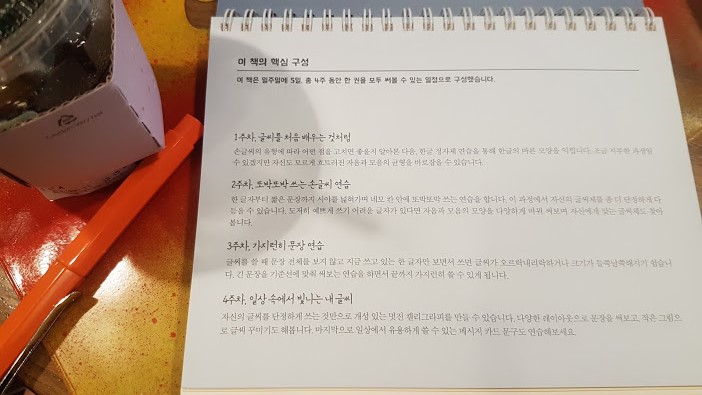 이 책의 핵심 구성
이 책은 일주일에 5일, 총 4주 동안 한 권을 모두 써볼 수 있는 일정으로 구성했습니다.
1주차, 글씨를 처음 배우는 것처럼
손글씨의 유형에 따라 어떤 점을 고치면 좋을지 알아본 다음, 한글 정자체 연습을 통해 한글의 바른 모양을 익힙니다. 조금 지루한 과정일
수 있겠지만 자신도 모르게 흐트러진 자음과 모음의 균형을 바로잡을 수 있습니다.
2주차, 또박또박 쓰는 손글씨 연습
한 글자부터 짧은 문장까지 시야를 넓혀가며 네모 칸 안에 또박또박 쓰는 연습을 합니다. 이 과정에서 자신의 글씨체를 좀 더 단정하게 다
듬을 수 있습니다. 도저히 예쁘게 쓰기 어려운 글자가 있다면 자음과 모음의 모양을 다양하게 바꿔 써보며 자신에게 맞는 글씨체도 찾아
봅니다.
3주차, 가지런히 문장 연습
글씨를 쓸 때 문장 전체를 보지 않고 지금 쓰고 있는 한 글자만 보면서 쓰면 글씨가 오르락내리락하거나 크기가 들쭉날쭉해지기 쉽습니
다. 긴 문장을 기준선에 맞춰 써보는 연습을 하면서 끝까지 가지런히 쓸 수 있게 됩니다.
4주차, 일상 속에서 빛나는 내 글씨
자신의 글씨를 단정하게 쓰는 것만으로 개성 있는 멋진 캘리그라피를 만들 수 있습니다. 다양한 레이아웃으로 문장을 써보고, 작은 그림으
로 글씨 꾸미기도 해봅니다. 마지막으로 일상에서 유용하게 쓸 수 있는 메시지 카드 문구도 연습해보세요.